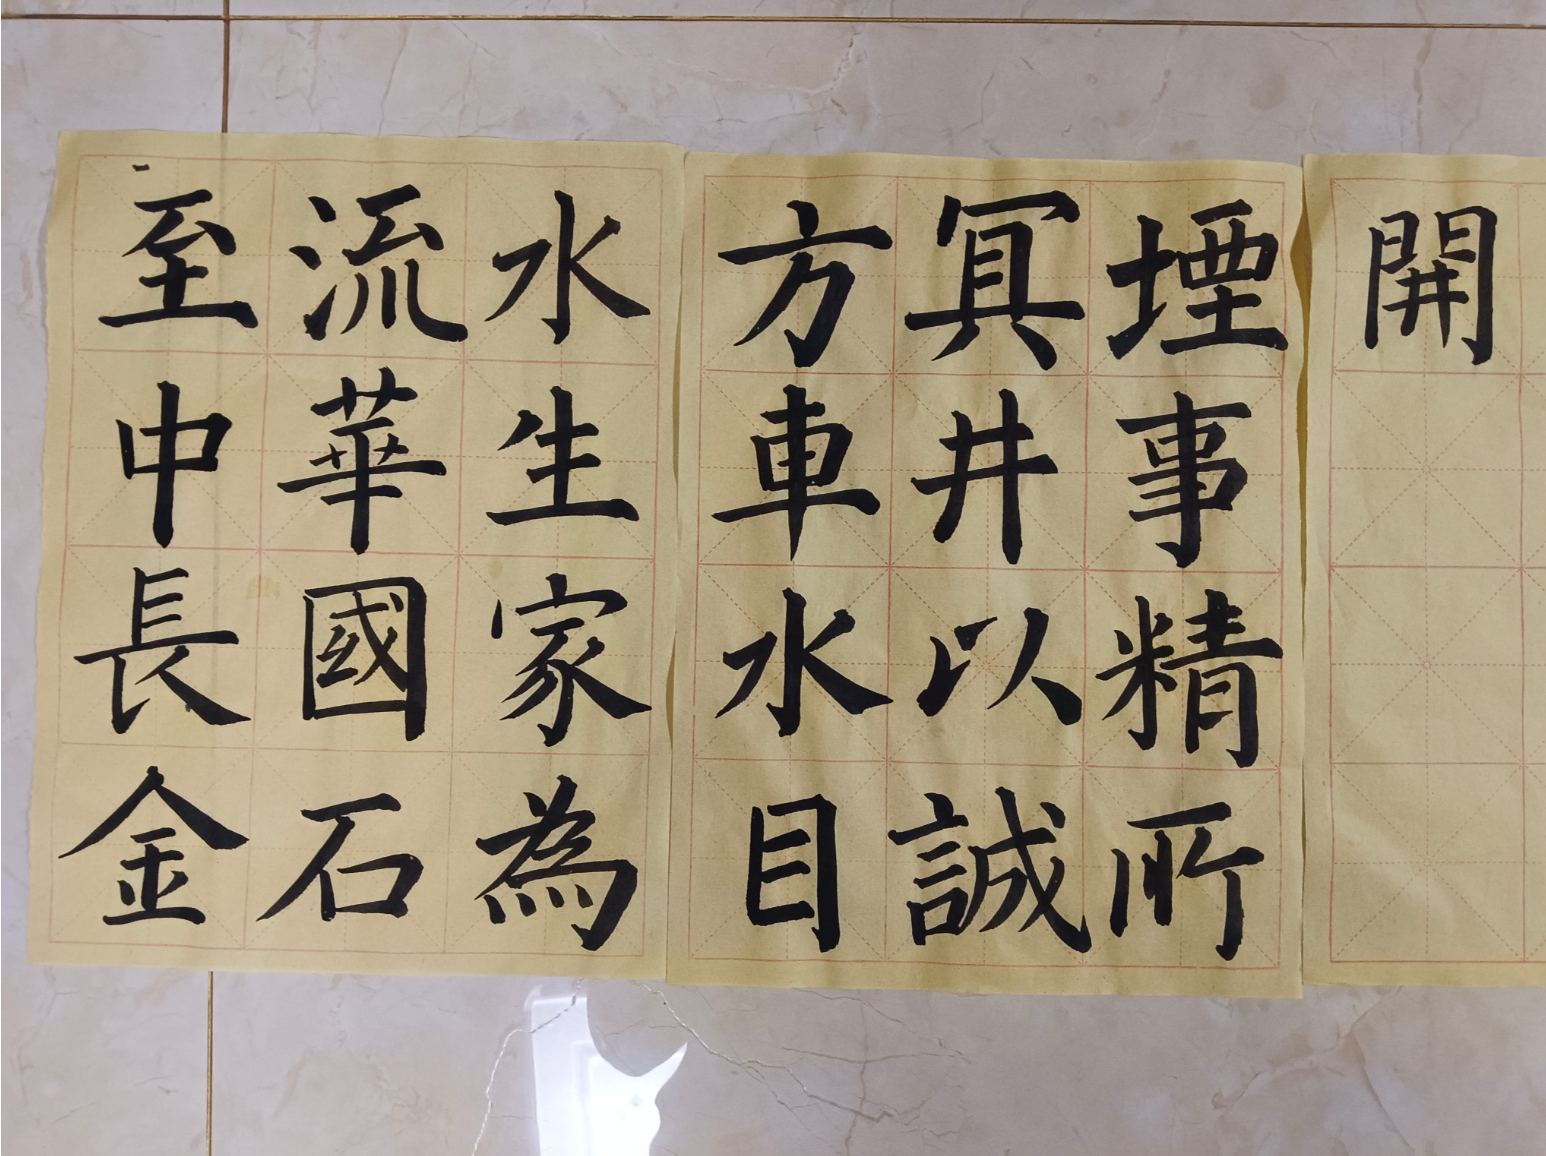 至流水
中華生
長國家
金石為
方冥煙
車井事
水以精
目誠所
開